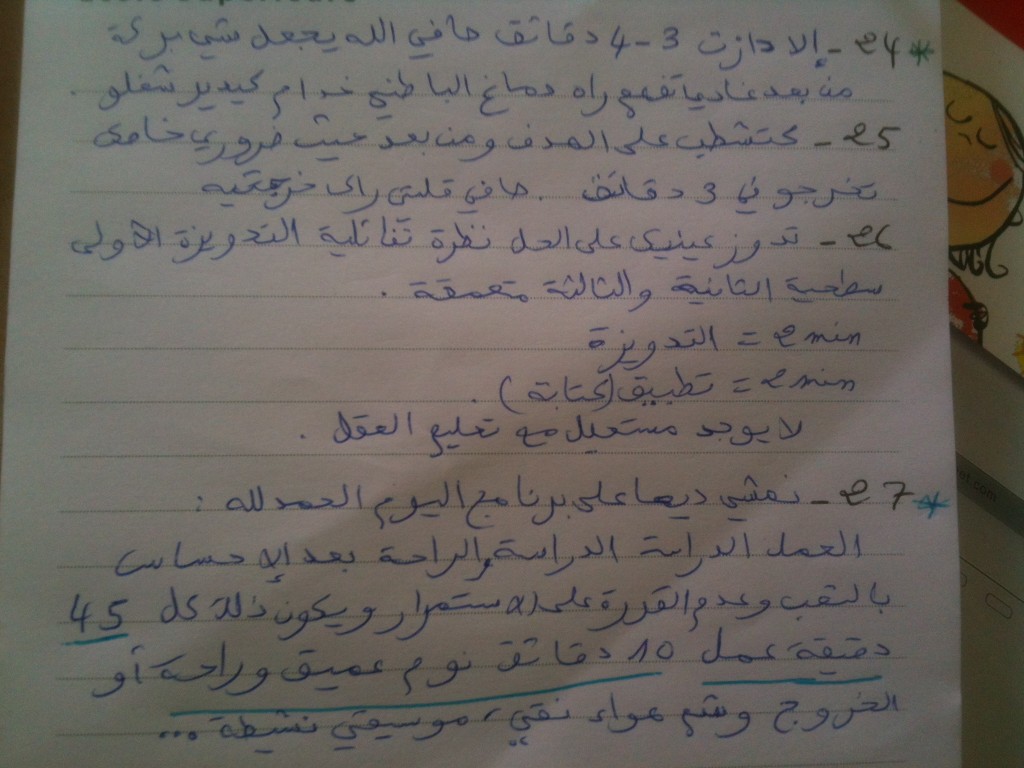 * 24 - إلا دازت 3-4 دقائق صافي الله يجعل شي بركة
من بعد غاديا تفهم راه دماغ الباطني خدام كيدير شغلو .
25 - كتشطب على الهدف ومن بعد حيث ضروري خاصك
تخرجو في 3 دقائق . صافي قلتي راك خرجتيه
26 - تدوز عينيك على الحل نظرة تفائلية التدويزة الأولى
سطحية الثانية والثالثة متعمقة .
2 min = التدويزة
2 min = تطبيق (كتابة) .
لا يوجد مستحيل مع تعليم العقل .
* 27 - نمشي ديما على برنامج اليوم الحمد لله :
العمل الدراسة والراحة بعد الإحساس
بالتعب وعدم القدرة على الاستمرار ويكون ذلك كل 45
دقيقة عمل 10 دقائق نوم عميق وراحة أو
الخروج وشم هواء نقي، موسيقى نشيطة ...